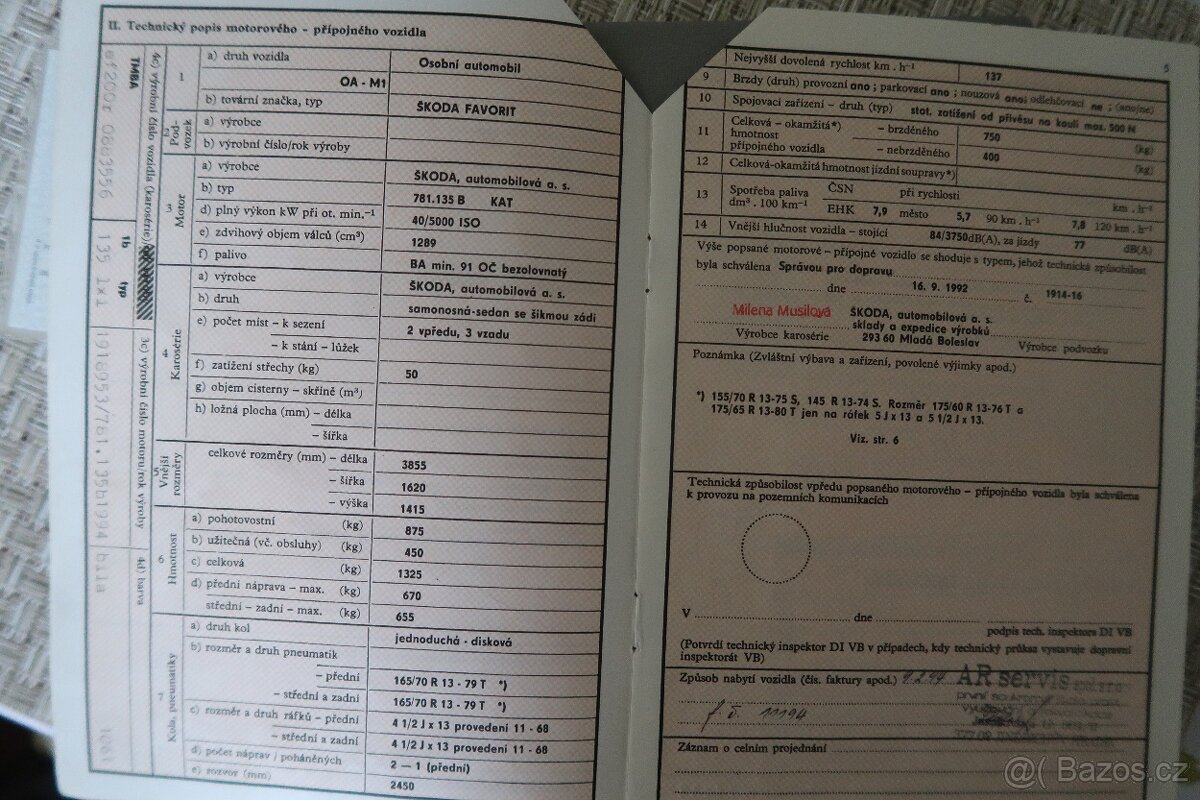 II. Technický popis motorového – přípojného vozidla
1
a) druh vozidla
Osobní automobil
OA - M1
b) tovární značka, typ
ŠKODA FAVORIT
2
Pod-
vozek
a) výrobce
b) výrobní číslo/rok výroby
3
Motor
a) výrobce
ŠKODA, automobilová a. s.
b) typ
781.135 B KAT
d) plný výkon kW při ot. min.⁻¹
40/5000 ISO
e) zdvihový objem válců (cm³)
1289
f) palivo
BA min. 91 OČ bezolovnatý
4
Karosérie
a) výrobce
ŠKODA, automobilová a. s.
b) druh
samonosná-sedan se šikmou zádí
e) počet míst – k sezení
2 vpředu, 3 vzadu
– k stání – lůžek
f) zatížení střechy (kg)
50
g) objem cisterny – skříně (m³)
h) ložná plocha (mm) – délka
– šířka
5
Vnější
rozměry
celkové rozměry (mm) – délka
3855
– šířka
1620
– výška
1415
6
Hmotnost
a) pohotovostní (kg)
875
b) užitečná (vč. obsluhy) (kg)
450
c) celková (kg)
1325
d) přední náprava – max. (kg)
670
střední – zadní – max. (kg)
655
7
Kola, pneumatiky
a) druh kol
jednoduchá - disková
b) rozměr a druh pneumatik
– přední
165/70 R 13 - 79 T *)
– střední a zadní
165/70 R 13 - 79 T *)
c) rozměr a druh ráfků – přední
4 1/2 J x 13 provedení 11 - 68
– střední a zadní
4 1/2 J x 13 provedení 11 - 68
d) počet náprav / poháněných
2 — 1 (přední)
e) rozvor (mm)
2450
4c) výrobní číslo vozidla (karosérie)
TMBA
1b typ
135 lxi
3c) výrobní číslo motoru/rok výroby
1918953/781.135b1994
4d) barva
bílá
5
Nejvyšší dovolená rychlost km . h⁻¹
137
9
Brzdy (druh) provozní ano ; parkovací ano ; nouzová ano; odlehčovací ne ; (ano/ne)
10
Spojovací zařízení – druh (typ) stat. zatížení od přívěsu na kouli max. 500 N
11
Celková – okamžitá*)
hmotnost
přípojného vozidla
– brzděného
750
(kg)
– nebrzděného
400
(kg)
12
Celková-okamžitá hmotnost jízdní soupravy*)
13
Spotřeba paliva
dm³ . 100 km⁻¹
ČSN
při rychlosti
km . h⁻¹
EHK 7,9 město 5,7 90 km . h⁻¹ 7,8 120 km . h⁻¹
14
Vnější hlučnost vozidla – stojící 84/3750dB(A), za jízdy 77 dB(A)
Výše popsané motorové – přípojné vozidlo se shoduje s typem, jehož technická způsobilost
byla schválena Správou pro dopravu
dne 16. 9. 1992 č. 1914-16
Milena Musilová
ŠKODA, automobilová a. s.
sklady a expedice výrobků
293 60 Mladá Boleslav
Výrobce karosérie
Výrobce podvozku
Poznámka (Zvláštní výbava a zařízení, povolené výjimky apod.)
*) 155/70 R 13-75 S, 145 R 13-74 S. Rozměr 175/60 R 13-76 T a
175/65 R 13-80 T jen na ráfek 5 J x 13 a 5 1/2 J x 13.
Viz. str. 6
Technická způsobilost vpředu popsaného motorového – přípojného vozidla byla schválena
k provozu na pozemních komunikacích
V dne
podpis tech. inspektora DI VB
(Potvrdí technický inspektor DI VB v případech, kdy technický průkaz vystavuje dopravní
inspektorát VB)
Způsob nabytí vozidla (čís. faktury apod.)
AR servis
Záznam o celním projednání
@( Bazos.cz